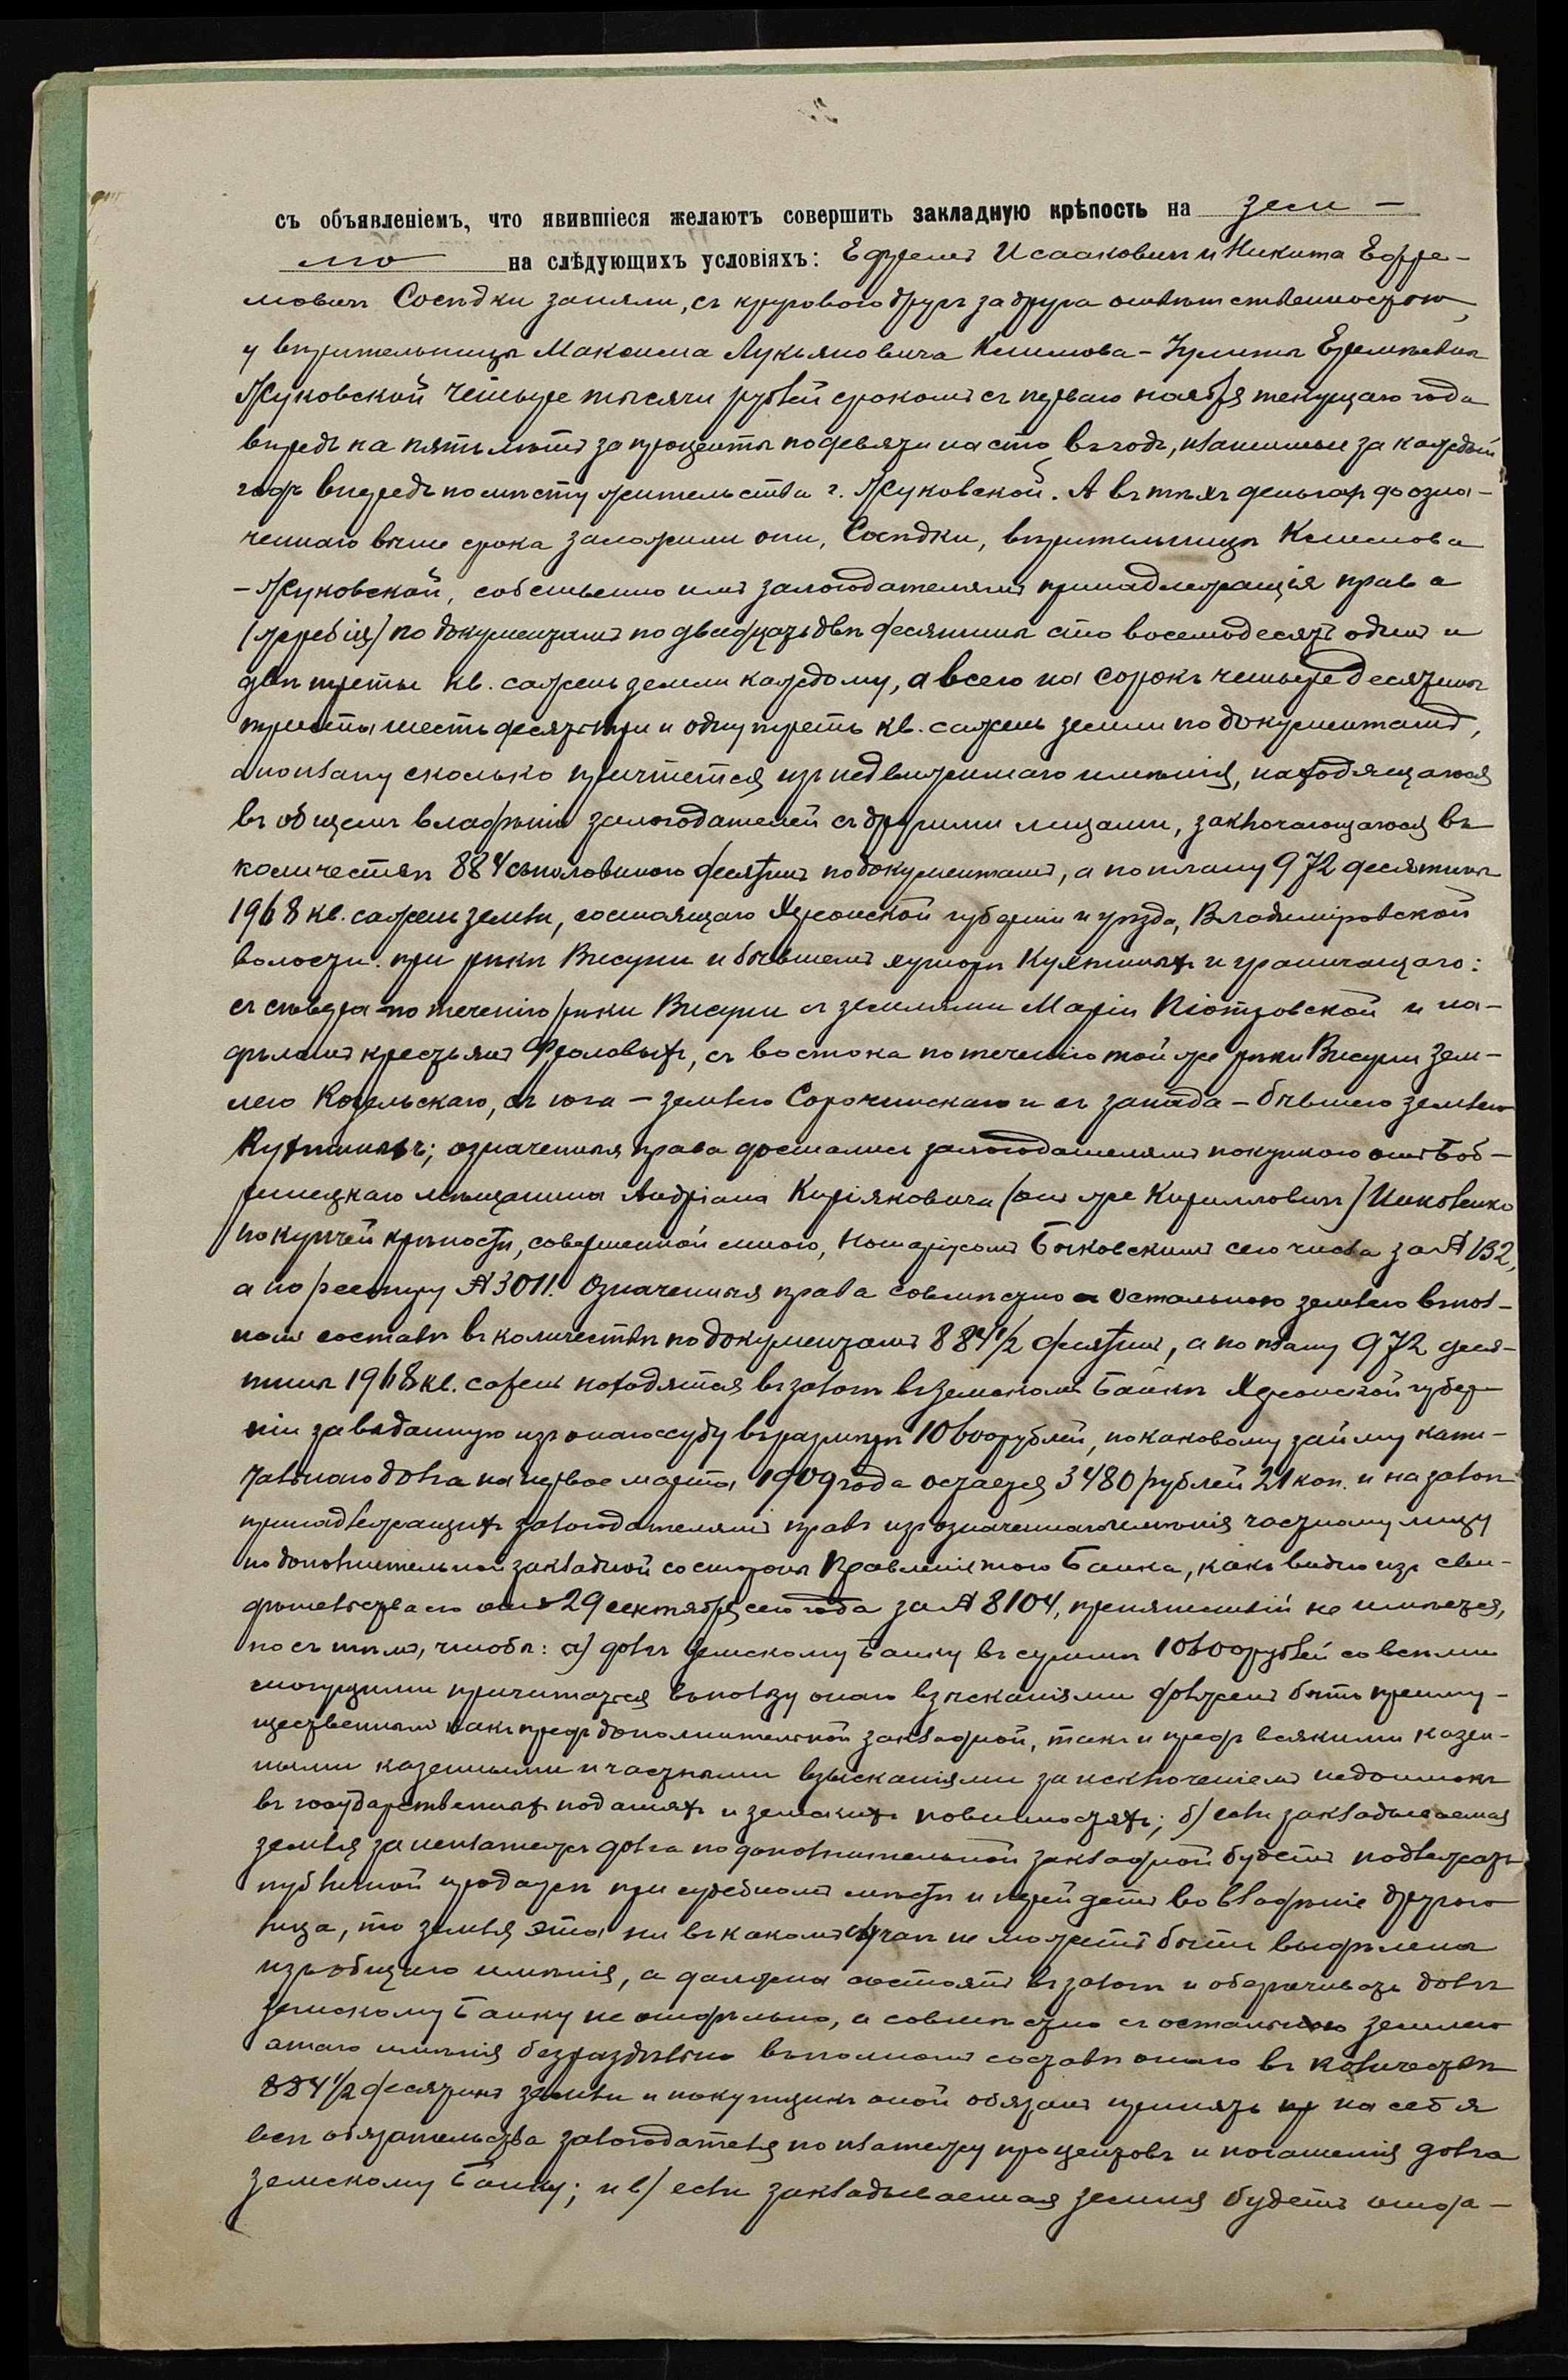 съ объявленіемъ, что явившіеся желаютъ совершить закладную крѣпость на зем-
лю на слѣдующихъ условіяхъ: Ефремъ Исааковичъ и Никита Ефре-
мовичъ Сосѣдки заняли, съ круговою другъ за друга отвѣтственностью,
у вѣрительницы Максима Лукьяновича Климова - Улиты Еремѣевны
Жуковской четыре тысячи рублей срокомъ съ перваго ноября текущаго года
впредь на пять лѣтъ за проценты по девяти на сто въ годъ, платимые за каждый
годъ впередъ по мѣсту жительства г. Жуковской. А въ тѣхъ деньгахъ до озна-
ченнаго выше срока заложили они, Сосѣдки, вѣрительницѣ Климова
- Жуковской, собственно имъ залогодателямъ принадлежащія права
(жребія) по документамъ по двадцать двѣ десятины сто восемьдесятъ одинъ и
двѣ трети кв. сажень земли каждому, а всего на сорокъ четыре десятины
триста шестьдесятъ три и одну треть кв. сажень земли по документамъ,
а по плану сколько причтется изъ недвижимаго имѣнія, находящагося
въ общемъ владѣніи залогодателей съ другими лицами, заключающагося въ
количествѣ 884 съ половиною десятинъ по документамъ, а по плану 972 десятины
1968 кв. сажень земли, состоящаго Херсонской губерніи и уѣзда, Владиміровской
волости при рѣкѣ Висуни и бывшемъ хуторѣ и граничащаго:
съ сѣвера по теченію рѣки Висуни съ землями Маріи Піотровской и на-
дѣломъ крестьянъ Фроловыхъ, съ востока по теченію той же рѣки Висуни зем-
лею Козельскаго, съ юга - землею Сорочинскаго и съ запада - бывшею землею
означенныя права достались залогодателямъ покупкою отъ Боб-
ринецкаго мѣщанина Андріана Киріяковича (онъ же Кирилловичъ)
по купчей крѣпости, совершенной мною, Нотаріусомъ Бычковскимъ сего числа за № 132,
а по реестру № 3011. Означенныя права совмѣстно съ остальною землею въ пол-
номъ составѣ въ количествѣ по документамъ 884½ десятинъ, а по плану 972 деся-
тины 1968 кв. сажень находятся въ залогѣ въ Земскомъ Банкѣ Херсонской губер-
ніи за выданную изъ онаго ссуду въ размѣрѣ 10600 рублей, по каковому займу капи-
тальнаго долга на первое марта 1909 года остается 3480 рублей 21 коп. и на залогъ
принадлежащихъ залогодателямъ правъ изъ означеннаго имѣнія частному лицу
по дополнительной закладной со стороны Правленія того Банка, какъ видно изъ сви-
дѣтельства его отъ 29 сентября сего года за № 8104, препятствій не имѣется,
но съ тѣмъ, чтобы: а) долгъ Земскому Банку въ суммѣ 10600 рублей со всѣми
могущими причитаться въ пользу онаго взысканіями долженъ быть преиму-
щественнымъ какъ предъ дополнительной закладной, такъ и предъ всякими казен-
ными казенными и частными взысканіями за исключеніемъ недоимокъ
въ государственныхъ податяхъ и земскихъ повинностяхъ; б) если закладываемая
земля за неплатежъ долга по дополнительной закладной будетъ подлежать
публичной продажѣ при судебномъ мѣстѣ и перейдетъ во владѣніе другого
лица, то земля эта ни въ какомъ случаѣ не можетъ быть выдѣлена
изъ общаго имѣнія, а должна состоять въ залогѣ и обезпечивать долгъ
Земскому Банку не отдѣльно, а совмѣстно съ остальною землею
этого имѣнія безраздѣльно въ полномъ составѣ онаго въ количествѣ
884½ десятинъ земли и покупщикъ оной обязанъ принять на себя
всѣ обязательства залогодателя по платежу процентовъ и погашенія долга
Земскому Банку; и в) если закладываемая земля будетъ